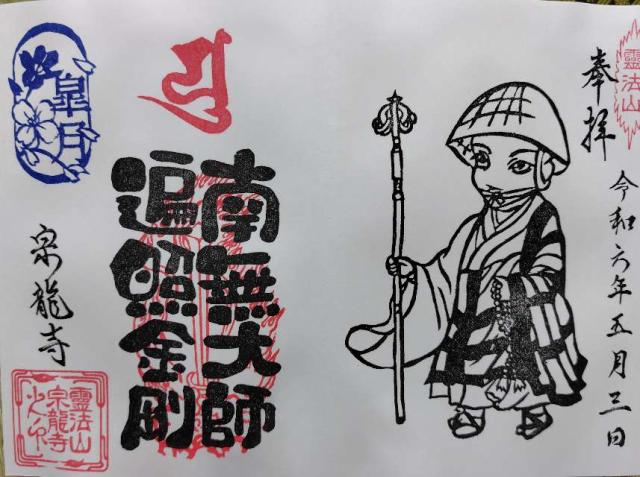 靈法山
奉拝
令和六年五月三日
南無大師
遍照金剛
皐月
宗龍寺
靈法山
宗龍寺
火印